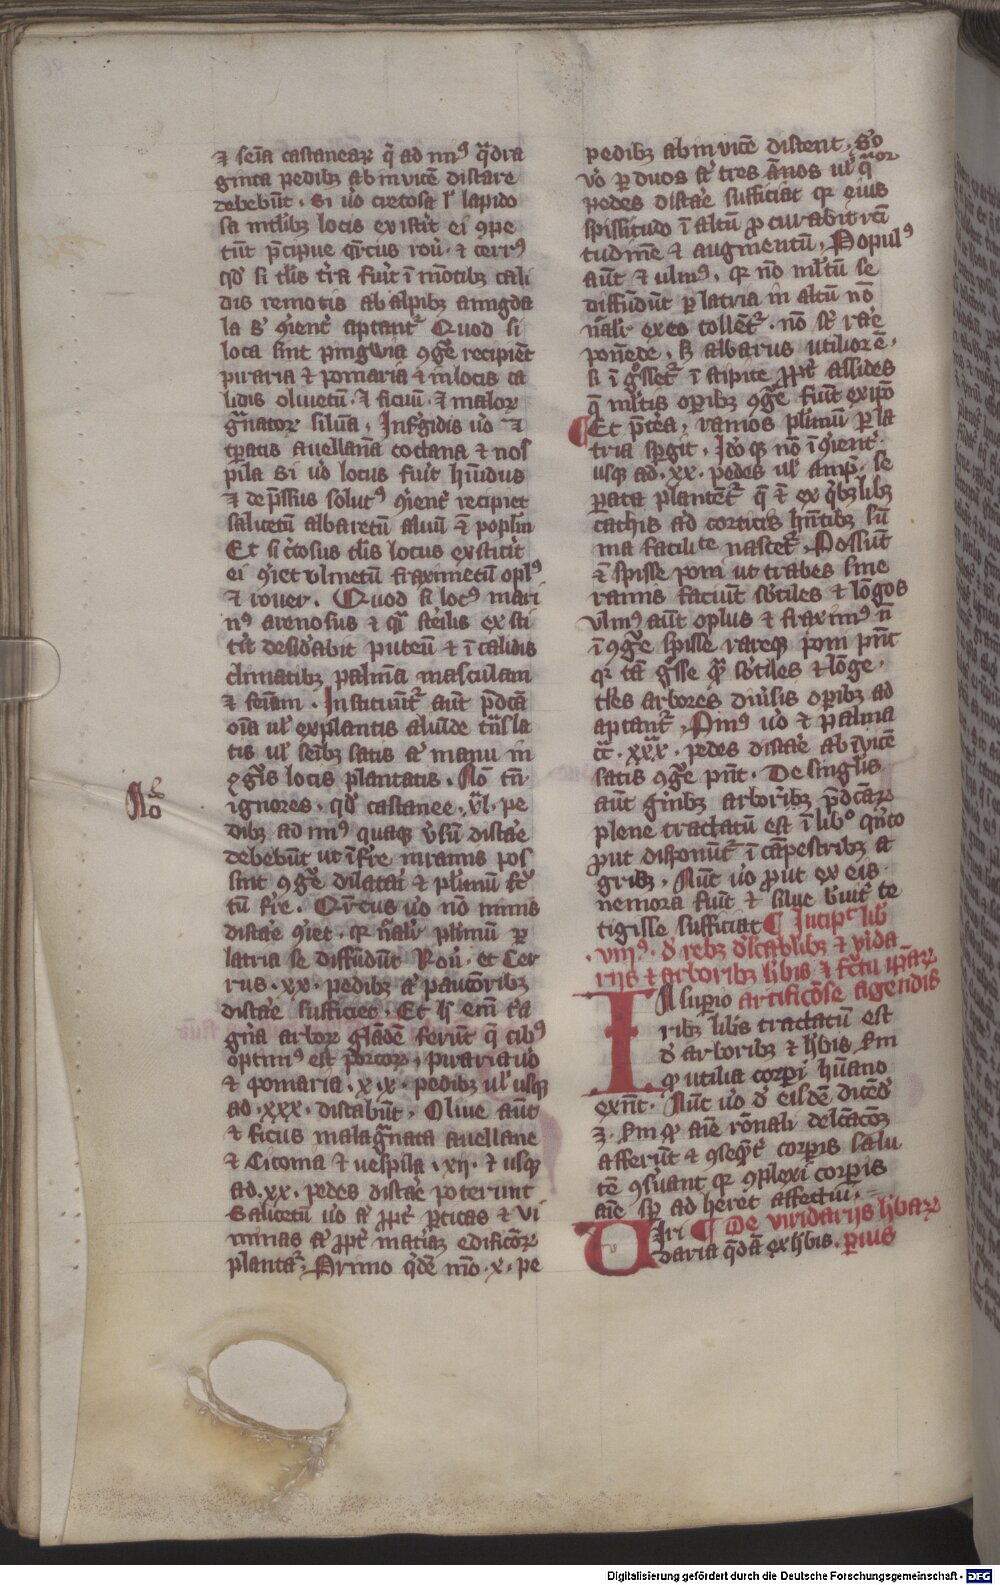 ⁊ sēīa castanear̄ q̄ ad mīꝰ q̄dra
ginta pedibꝫ ab invicē distare
debebūt · Si u̓o cretosa ł lapido
sa in tlibꝫ locis existīt ei ꝯpe
tūt p̄cipue q̄rcus rou̓ · ⁊ cerrꝰ
qd̓ si tlīs tr̄a fūit ī mōtibꝫ cali
dis remotis ab alpibꝫ amigda
la ⁊ ꝯuenēt̓ aptant̓ Quod si
loca sint pingwia ꝯg̓e recipiēt
piraria ⁊ pomaria ⁊ in locis ca
lidis olivetū · ⁊ ficuū · ⁊ malor̄
g̃nator̄ siluā · In frigidis u̓o ⁊
tp̄atis auellanā coctana ⁊ nes
pila Si u̓o locus fūit hūidus
⁊ dep̄ssus solutꝰ ꝯuenēt̓ recipiet
salicetū albaretū alnū ⁊ poplm̄
Et si c̓tosus tlīs locus extitīt
ei ꝯiet vlmetū fraximetū oplꝰ
⁊ rouer · Quod si locꝰ mari
nꝰ arenosus ⁊ q̄si st̓ilis exsti
tīt desid̓abit pinetū ⁊ ī calidis
climatibꝫ palmā masculam
⁊ fēiam · Instituūt̓ aūt p̄dc̄a
oīa ul̓ ex plantis aliūde tn̄sla
tis ul̓ seībꝫ satis a̓ manu in
ꝯg̓is locis plantatis · No̅ tn̄
ignores · qd̓ castanee · xl · pe
dibꝫ ad mīꝰ quaqꝫ v̓sū distāe
debebūt ut īf̓re in ramis pos
sint ꝯg̓e dilatāi ⁊ plīmū f̓c
tū f̓re · Q̓rcus u̓o nō minus
distāe ꝯiet · qꝛ nāli̓ plīmū ꝑ
latria se diffūdūt Rou̓ · et Cer
rus · xx · pedibꝫ a̓ paucōribꝫ
distāe sufficiet · Et h̓ em̄ ma
gn̄a arbor glādē ferūt q̄ cibꝰ
optimꝰ est porcor̄ · piraria u̓o
⁊ pomaria · xx · pedibꝫ ul̓ usqꝫ
ad · xxx · distabūt · Oliue aūt
⁊ ficus malag̃nata auellane
⁊ Citonia ⁊ nespila · xij · ⁊ usqꝫ
ad · xx · pedes distāe poterunt
Salicetū u̓o a̓ ꝓpt̓ ꝑticas ⁊ vi
minas a̓ ꝓpt̓ mat̓iaꝫ edificōꝝ
plantāt̓ Primo q̓dē mō · x · pe
No
pedibꝫ ab invicē distent · Sc̓o
u̓o ꝑ duos a̓ tres ānos ul̓ q̄tuor
pedes distāe sufficiat qꝛ eius
spissitudo ī altū ꝓcurabit rc̄i
tudinē ⁊ augmentū · Populꝰ
aūt ⁊ ulmꝰ · qꝛ nō ml̓tū se
diffūdūt ꝑ latria in altū nō
nāli̓ ex eo tollēt̓ · nō st̓ rāe
ponēde · ⁊ albarus utilior ē ·
si ī g̓sset̓ ī stipite ꝓpt̓ assides
q̄ ml̓tis op̄ibꝫ ꝯg̓e fiūt ex ip̄o
Et p̄tea · ramos plīmū ꝑ la
tria sp̄git · Ido̓ qꝫ nō īꝯuenēt̓
usqꝫ ad · xx · pedes ul̓ ampl̓ · se
ꝑata plantēt̓ q̄ ⁊ ex q̓bꝫlibꝫ
cathis ad corticis hn̄tibꝫ sū
ma facilit̓e nascet̓ · Possūt
⁊ spisse poni ut trabes sine
ramis faciūt sb̓tiles ⁊ lōgos
Vlmꝰ aūt oplus ⁊ fraximꝰ n̄
īꝯg̓e spisse rareqꝫ poni pn̄t
qꝛ tā g̓sse q̄ sb̓tiles ⁊ lōge ·
tles arbores diu̓sis op̄ibꝫ ad
aptant̓ · Pinꝰ u̓o ⁊ palma
cc̄ · xxx · pedes distāe ab ivicē
satis ꝯg̓e pn̄t · De singlīs
aūt gn̄ibꝫ arboribꝫ p̄dc̄aꝝ
plene tractatū est ī libº q̓nto
ꝓut disponūt̓ ī cāpestribꝫ a
gribꝫ · Nūt u̓o ꝓut ex eis
nemora fiūt ⁊ silue bu̓it̓ te
tigisse sufficiat ¶ Incip̄ᵗ lib̓
· viijꝰ · d̓ rebꝫ d̓lcabilibꝫ ⁊ v̓ida
rijs ⁊ arboribꝫ h̓bis ⁊ fc̄tu ip̄aꝝ
In suꝑio artificōse agendis
ribꝫ libris tractatū est
d̓ arboribꝫ ⁊ h̓bis sm̄
qꝫ utilia corpi̓ hūano
exn̄t · Nūt u̓o d̓ eisdē dicēd̓
ꝫ · sm̄ qꝫ aīe rōnali delc̄acōꝫ
afferūt ⁊ ꝯseq̄t̓ corꝑis salu
tē ꝯsūant qꝛ ꝯplexi corꝑis
aīe sp̄ ad heret affectiū ·
Viri ¶ De viridarijs h̓baꝝ
daria q̄dā ex h̓bis · ꝑius
Digitalisierung gefördert durch die Deutsche Forschungsgemeinschaft - DFG